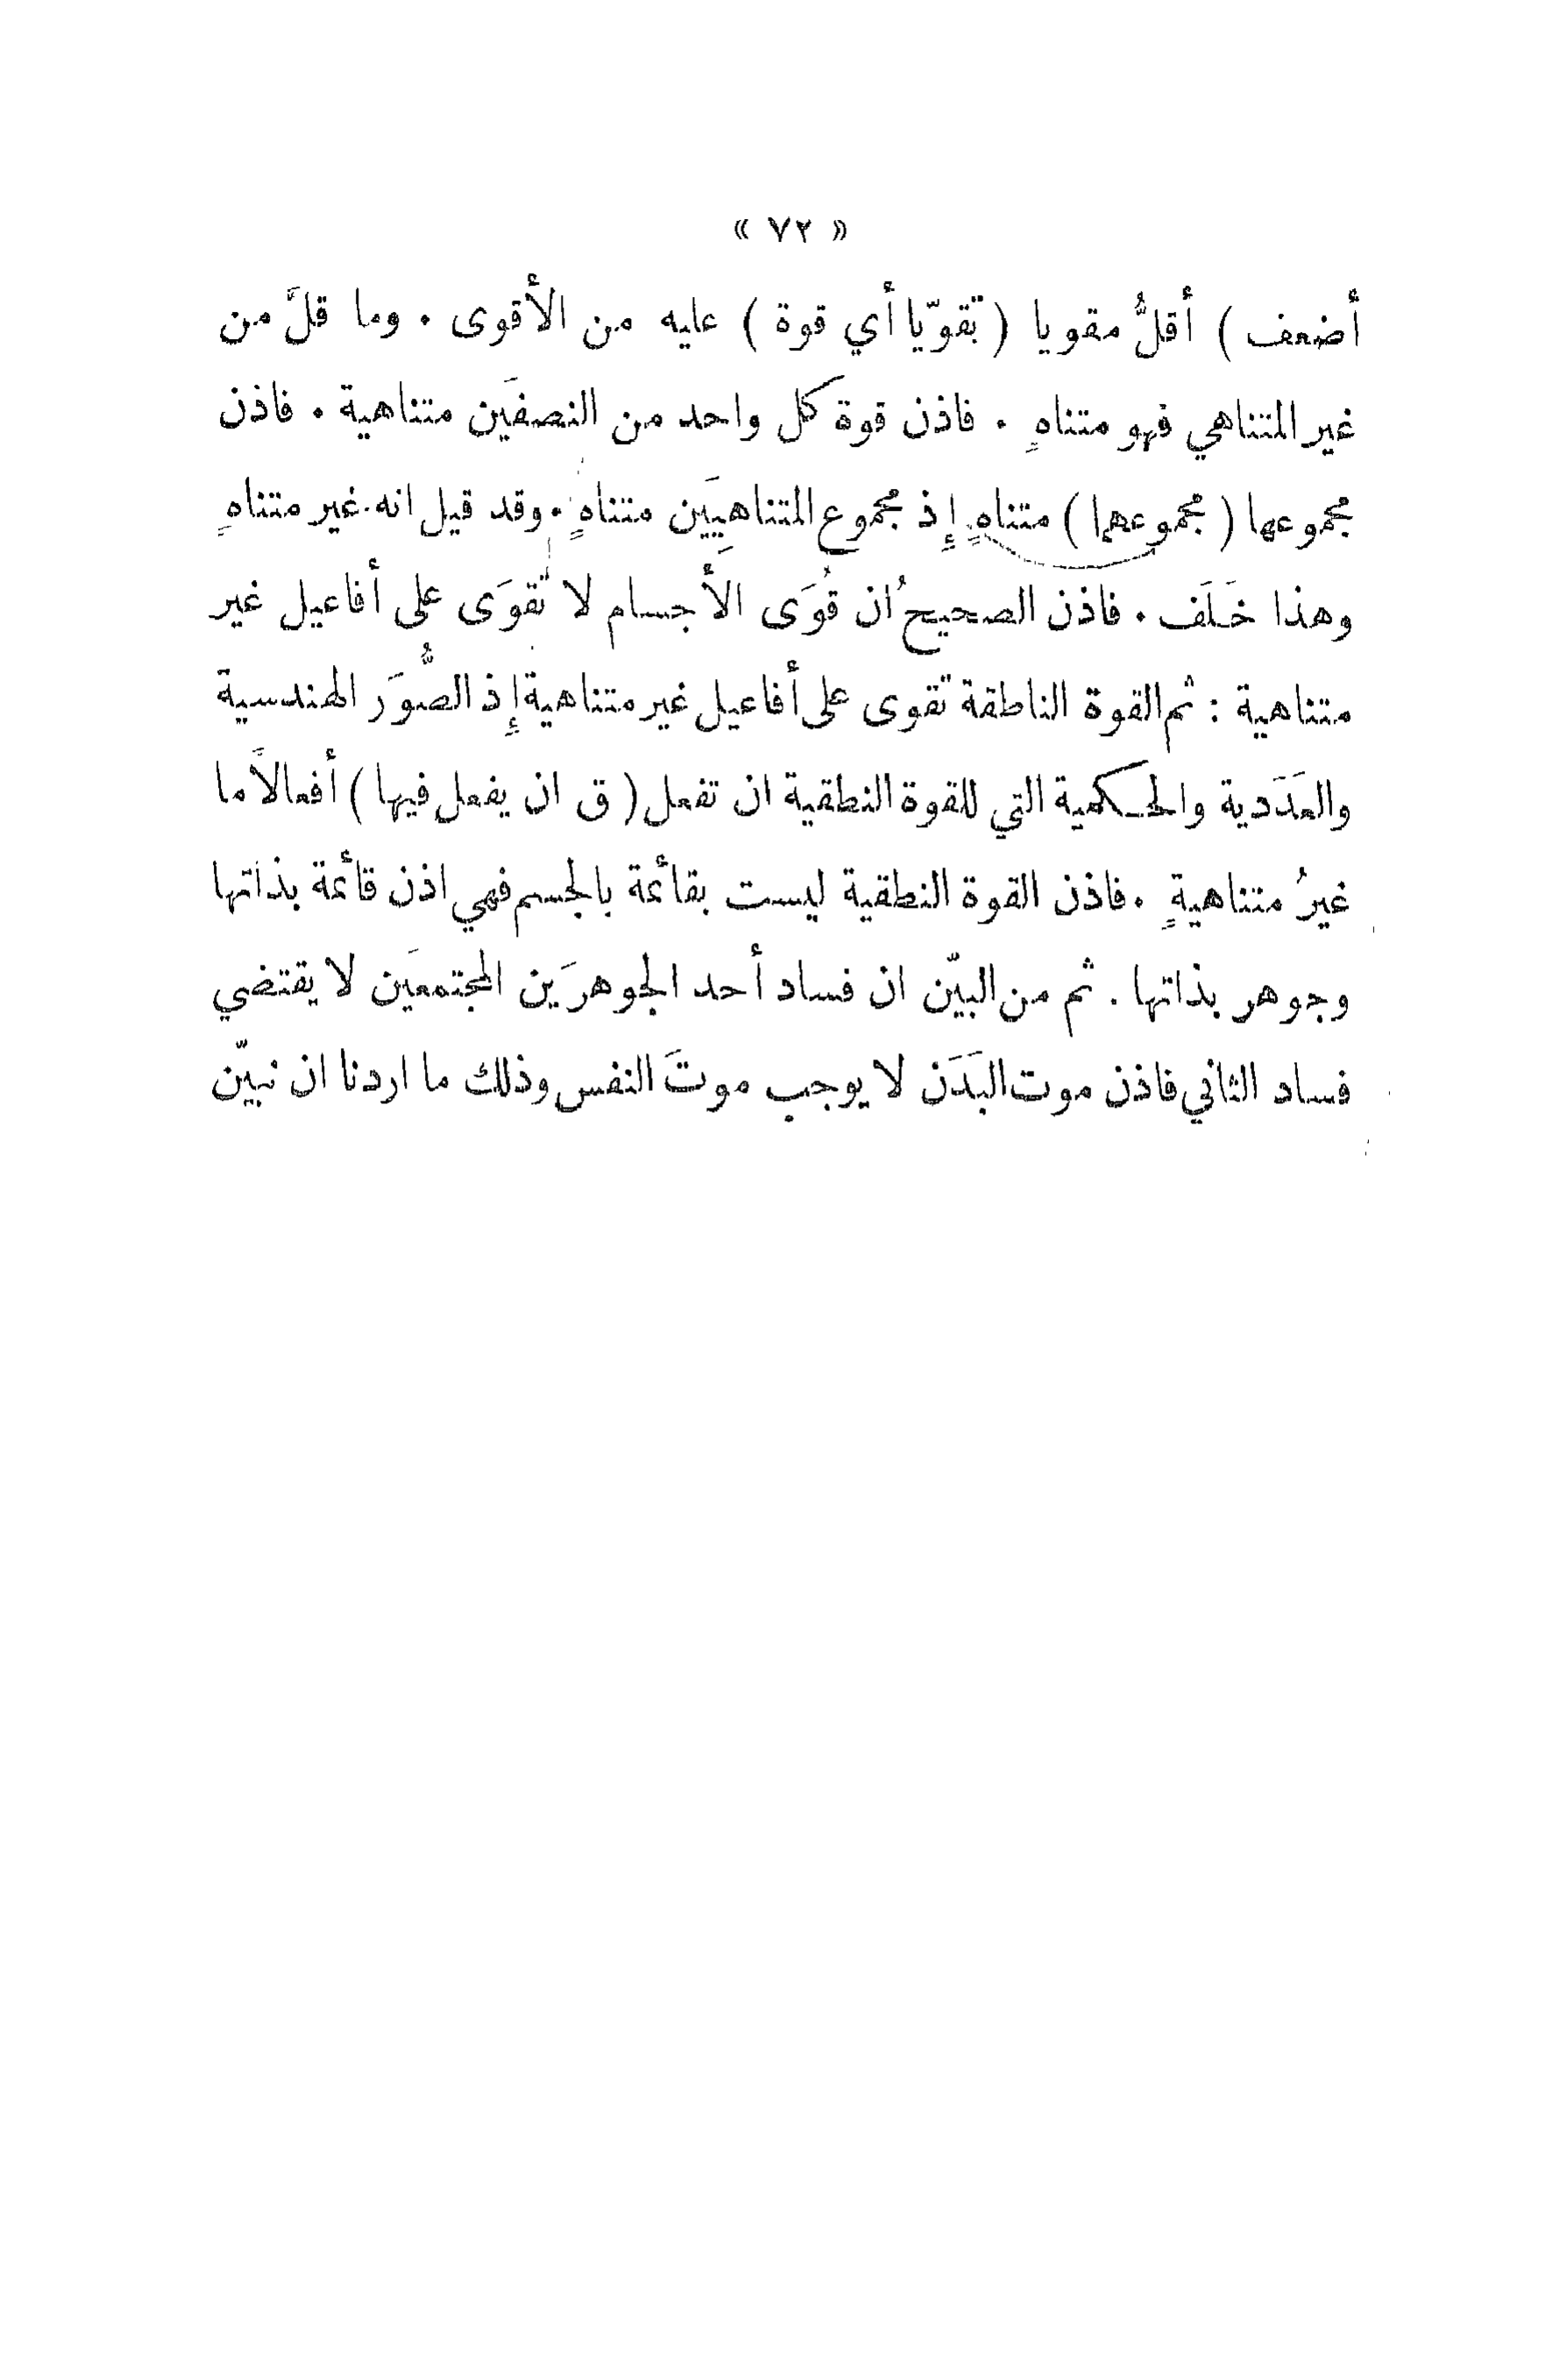 « ٧٢ »
أضعف ) أقلُّ مقويا ( تقوّيا أي قوة ) عليه من الأقوى . وما قلَّ من
غير المتناهي فهو متناهٍ . فاذن قوة كل واحد من النصفَين متناهية . فاذن
مجموعها ( مجموعهما ) متناهٍ إِذ مجموع المتناهيَين متناهٍ . وقد قيل انه غير متناهٍ
وهذا خَلَف . فاذن الصحيحُ ان قُوَى الأجسام لا تقوَى على أفاعيل غير
متناهية : ثم القوة الناطقة تقوى على أفاعيل غير متناهية إِذ الصُّوَر الهندسية
والعدَدية والحكمية التي للقوة النطقية ان تفعل ( ق ان يفعل فيها ) أفعالاً ما
غيرُ متناهيةٍ . فاذن القوة النطقية ليست بقائمة بالجسم فهي اذن قائمة بذاتها
وجوهر بذاتها . ثم من البيّن ان فساد أحد الجوهرَين المجتمعَين لا يقتضي
فساد الثاني فاذن موت البَدَن لا يوجب موتَ النفس وذلك ما اردنا ان نبيّن